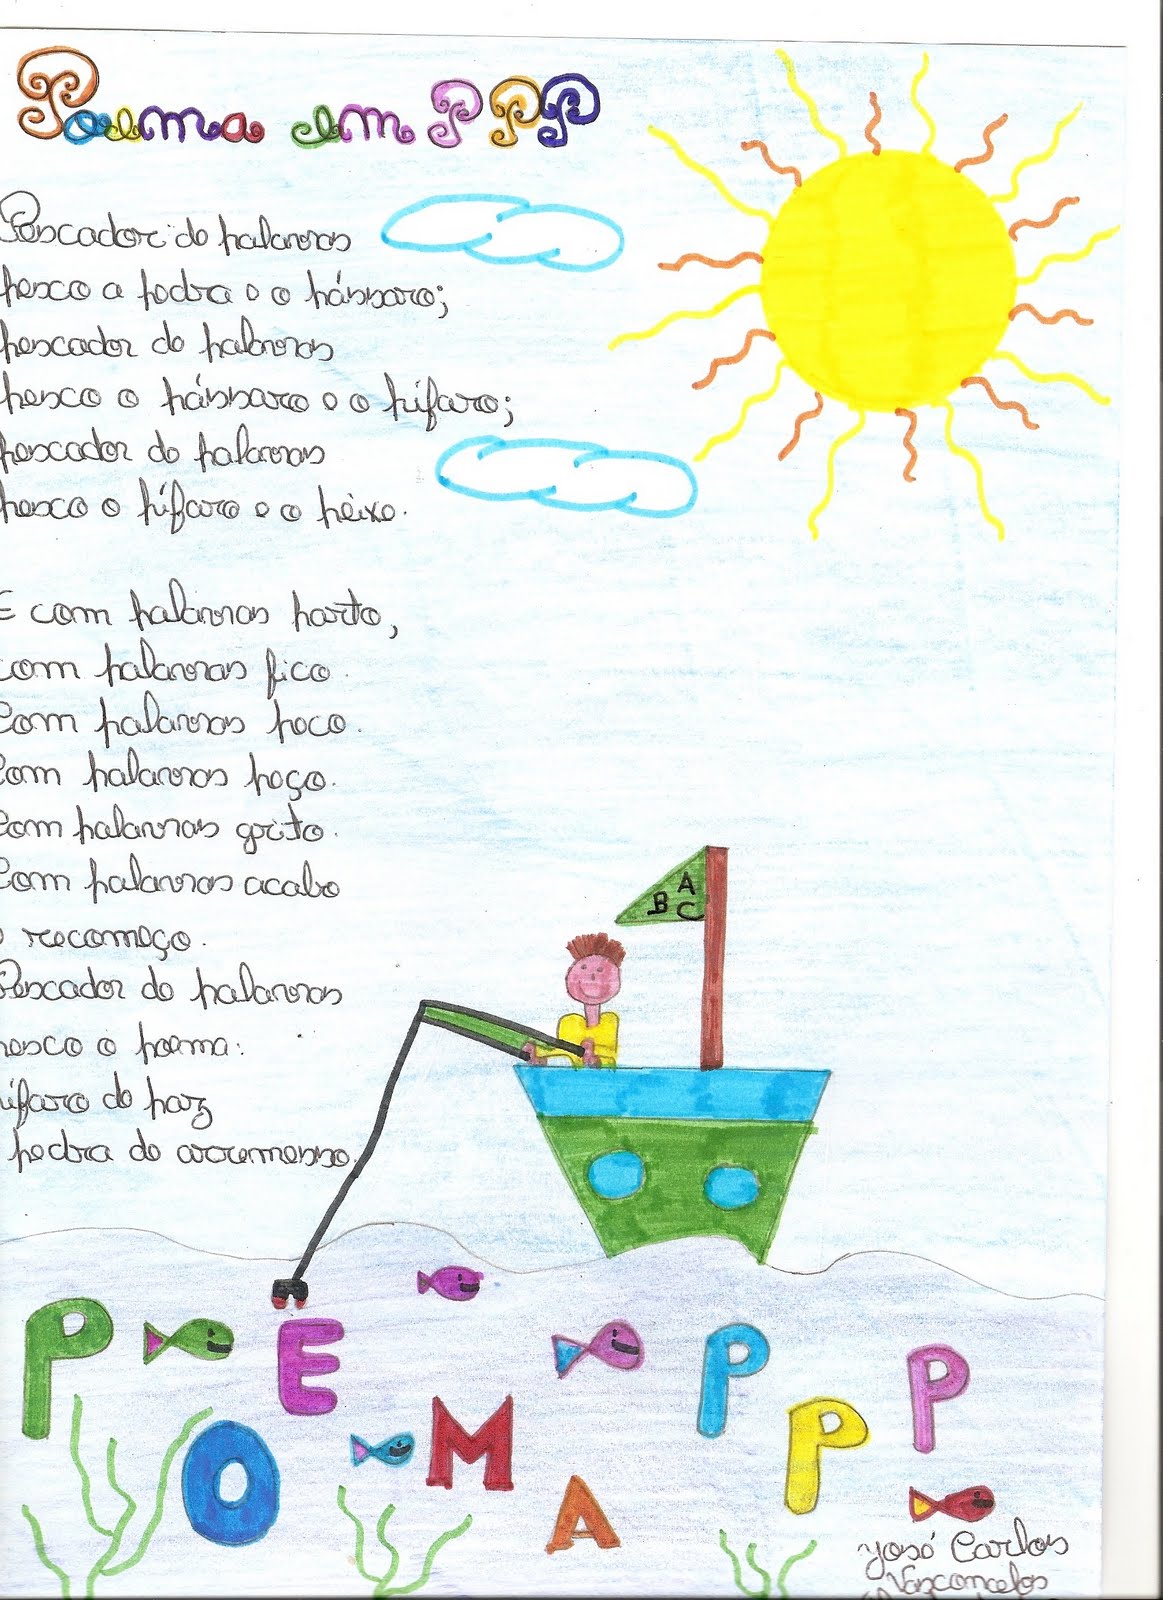 Poema em PPP
Pescador de palavras
pesco a pedra e o pássaro;
pescador de palavras
pesco o pássaro e o pífaro;
pescador de palavras
pesco o pífaro e o peixe.
E com palavras parto,
com palavras fico.
Com palavras peco.
Com palavras peço.
Com palavras grito.
Com palavras acabo
e recomeço.
Pescador de palavras
pesco o poema:
pífaro de paz
pedra de arremesso.
A
B C
P E P P P
O M A
José Carlos
Vasconcelos